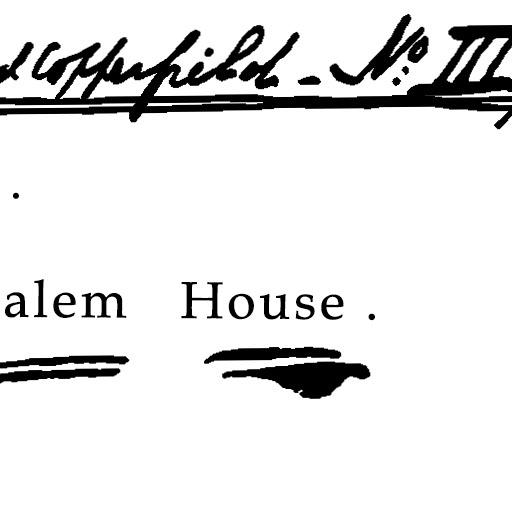 d Copperfield - No III
.
alem House .